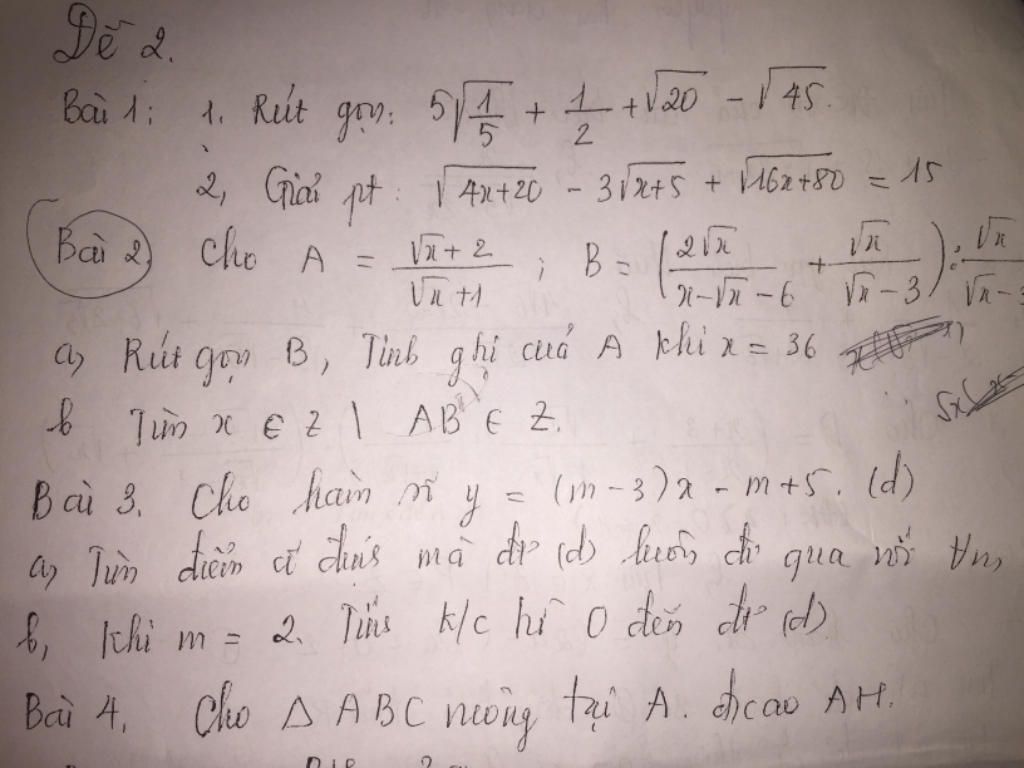 Đề 2.
Bài 1: 1. Rút gọn: 5√(1/5) + 1/2 + √20 - √45.
2, Giải pt: √(4x+20) - 3√(x+5) + √(16x+80) = 15
Bài 2. Cho A = (√x + 2)/(√x + 1) ; B = (2√x/(x-√x-6) + √x/(√x-3)) : √x/(√x-3
a, Rút gọn B, Tính gtrị của A khi x = 36
b Tìm x ∈ Z \ AB ∈ Z.
Bài 3. Cho hàm số y = (m-3)x - m+5. (d)
a, Tìm điểm cố định mà đt (d) luôn đi qua với ∀m
b, Khi m = 2. Tính k/c từ O đến đt (d)
Bài 4. Cho Δ ABC vuông tại A. đcao AH.